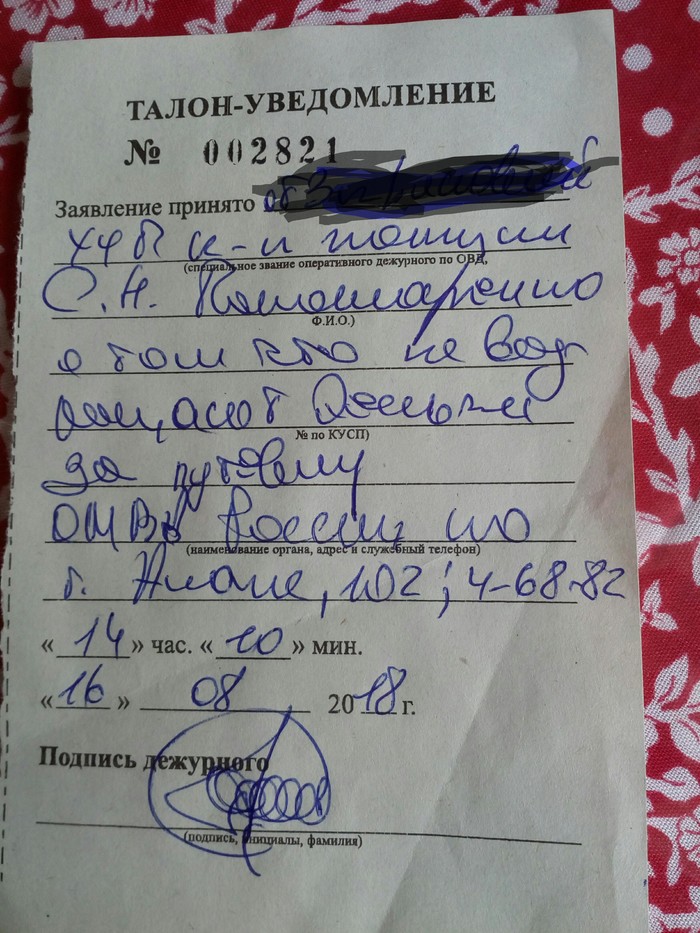 ТАЛОН-УВЕДОМЛЕНИЕ
№ 002821
Заявление принято от
к-н полиции
(специальное звание оперативного дежурного по ОВД,
С.Н. Пономаренко
Ф.И.О.)
о том что не воз
ращают деньги
№ по КУСП)
за путевку
ОМВД России по
(наименование органа, адрес и служебный телефон)
г. Анапе, 102; 4-68-82
« 14 » час. « 10 » мин.
« 16 » 08 2018 г.
Подпись дежурного
(подпись, инициалы, фамилия)